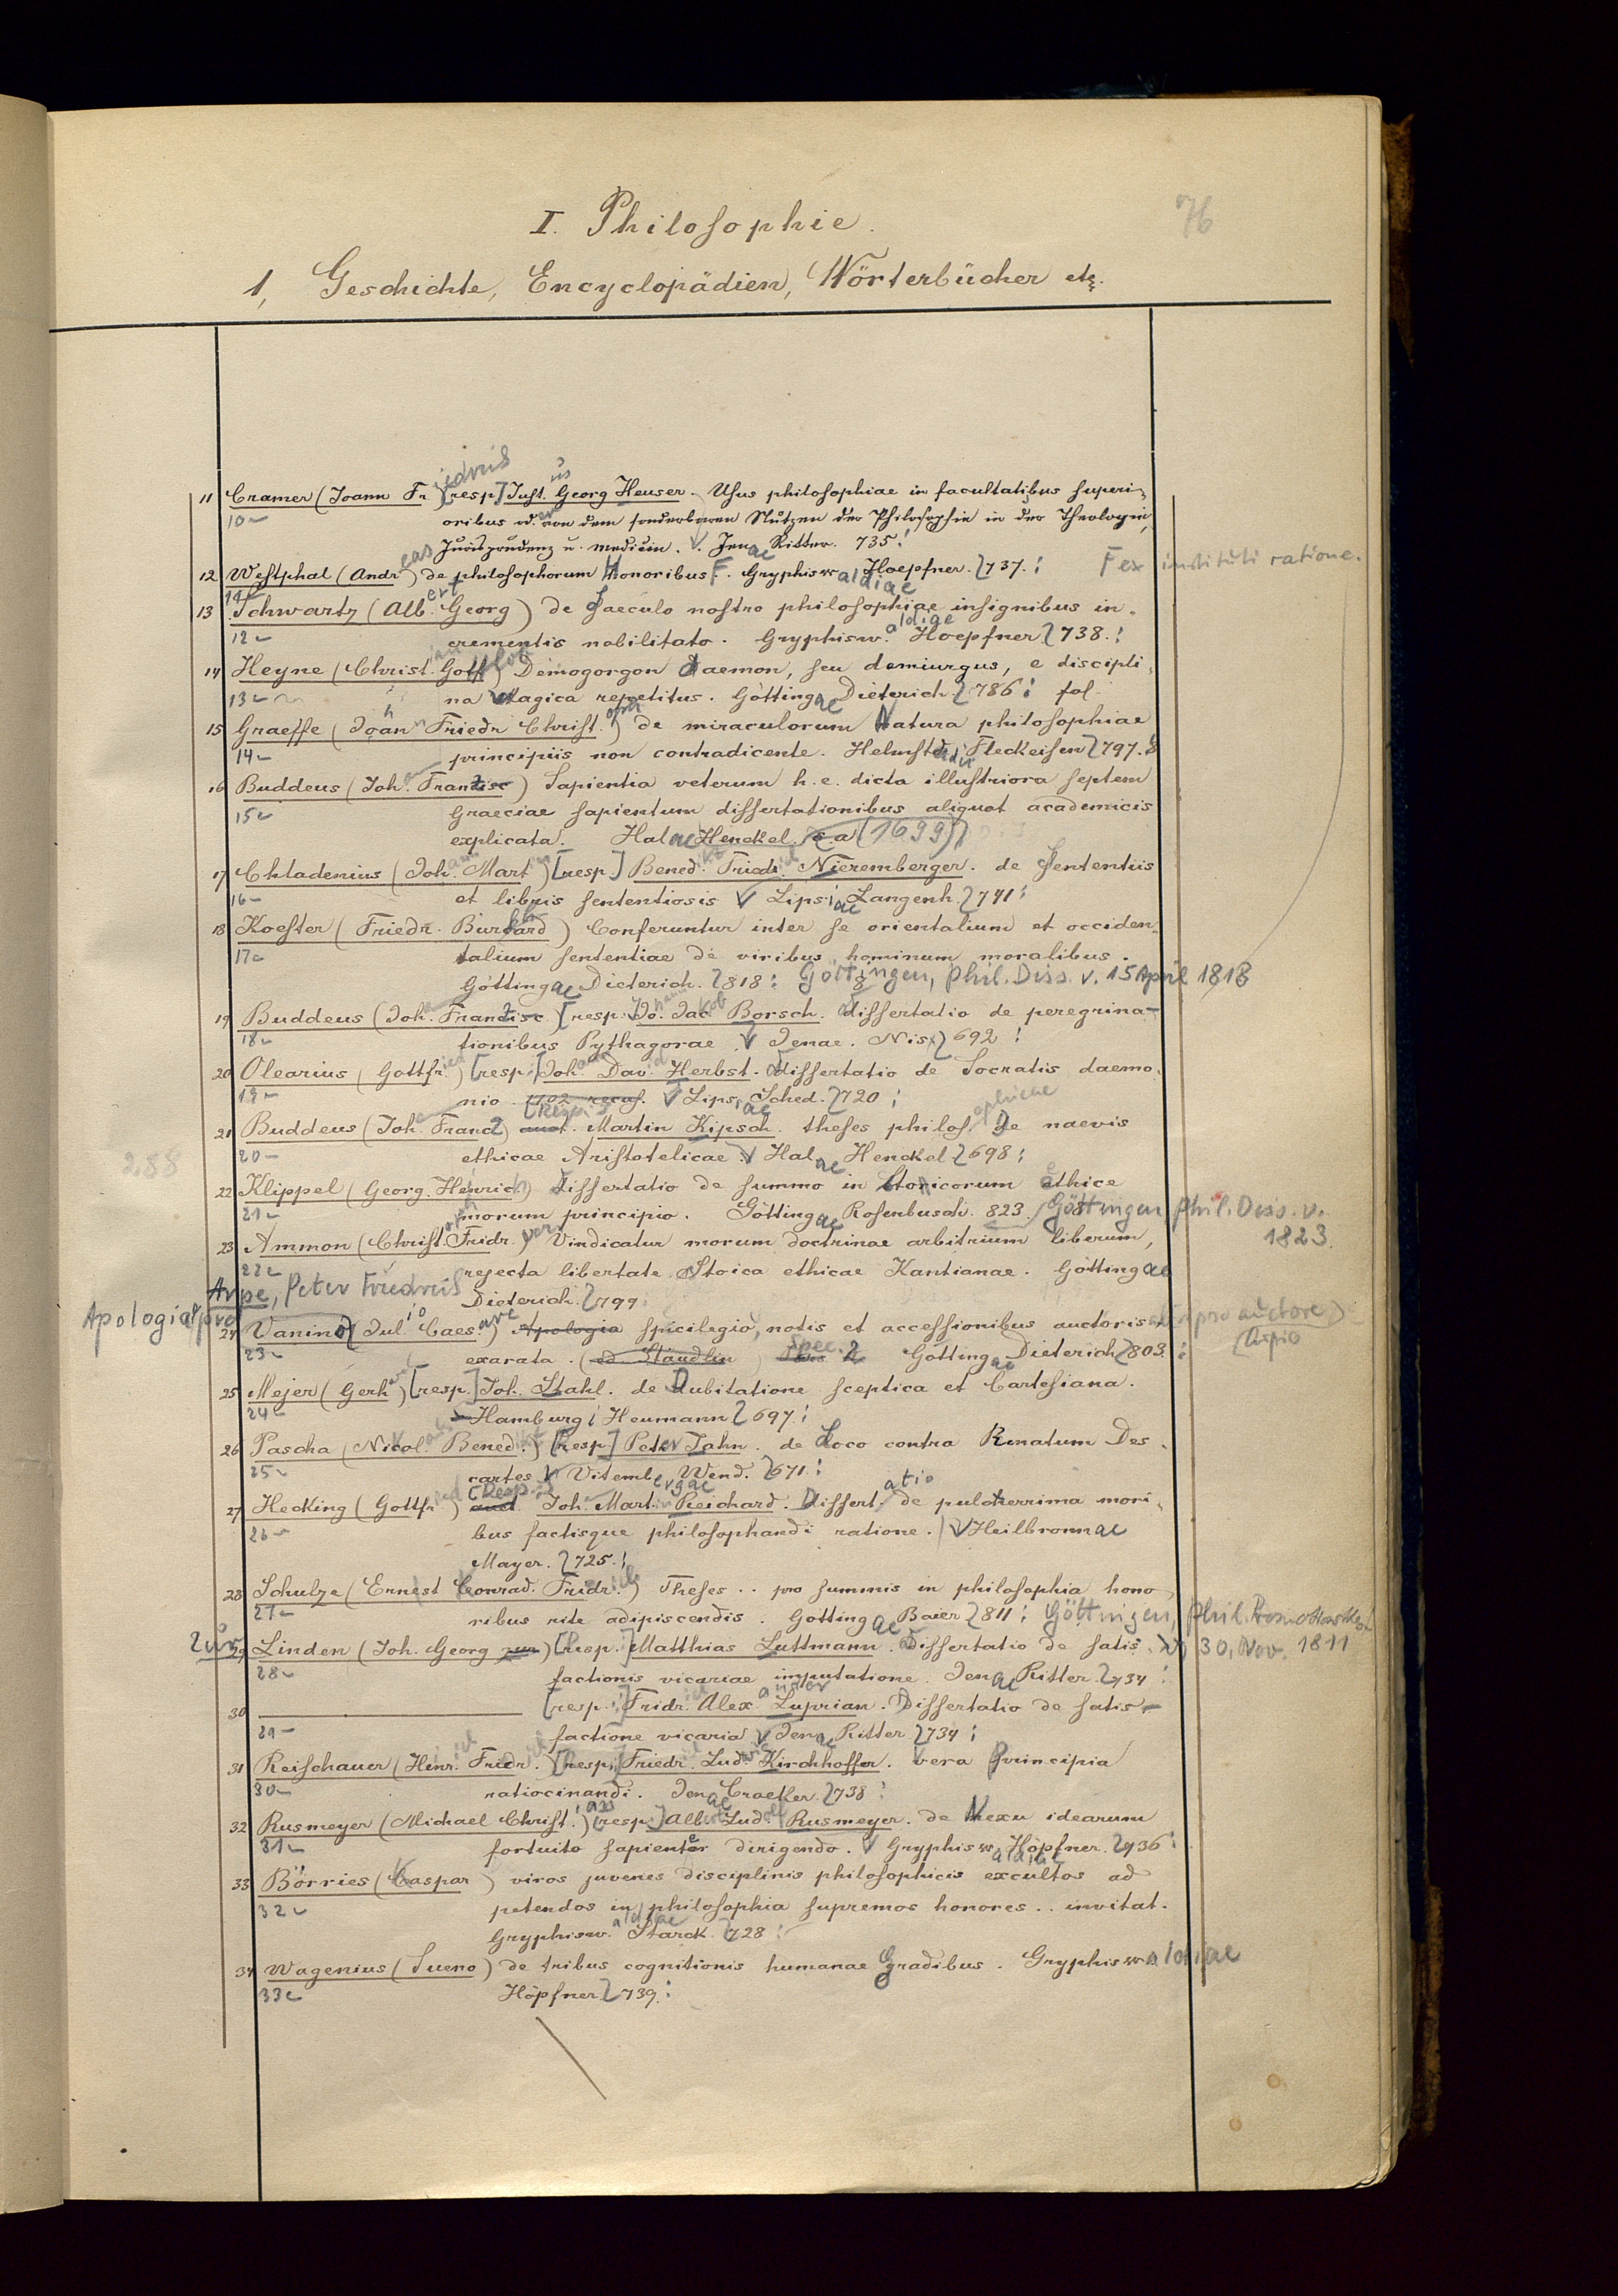 76
I. Philosophie.
1, Geschichte, Encyclopädien, Wörterbücher etc.
11 Cramer (Joann Friedrich) [resp.] Justus Georg Heuser. Usus philosophiae in facultatibus superi-
10 oribus od. von dem sonderbaren Nutzen der Philosophie in der Theologie,
Jurisprudenz u. Medicin. Jenae Ritter. 735.
12 Westphal (Andreas) de philosophorum Honoribus F. Gryphiswaldiae Hoepfner. 737. F ex instituti ratione.
11
13 Schwartz (Albert Georg) de Saeculo nostro philosophiae insignibus in-
12 crementis nobilitato. Gryphiswaldiae Hoepfner 738.
14 Heyne (Christian Gottlob) Demogorgon daemon, seu demiurgus, e discipli-
13 na Magica repetitus. Göttingae Dieterich. 786. fol.
15 Graeffe (Johann Friedr Christoph) de miraculorum Natura philosophiae
14 principiis non contradicente. Helmstadii Fleckeisen 797. 8
16 Buddeus (Joh. Franz) Sapientia veterum h. e. dicta illustriora septem
15 Graeciae sapientum dissertationibus aliquot academicis
explicata. Halae Henckel. s a (1699)
17 Chladenius (Johann Martin) [resp.] Benedikt Friedrich Nieremberger. de Sententiis
16 et libris sententiosis Lipsiae Langenh. 741
18 Koester (Friedr. Burchard) Conferuntur inter se orientalium et occiden-
17 talium sententiae de viribus hominum moralibus.
Göttingae Dieterich. 818: Göttingen, Phil. Diss. v. 15 April 1818
19 Buddeus (Joh. Franz) [resp. Johann Jacob Borsch. dissertatio de peregrina-
18 tionibus Pythagorae Jenae. Nis. 692
20 Olearius (Gottfried) [resp.] Johann David Herbst. dissertatio de Socratis daemo-
19 nio 1702 recus. Lipsiae Sched. 720
21 Buddeus (Joh. Franz) auct. [Resp.] Martin Kipsch. theses philosophicae De naevis
288
20 ethicae Aristotelicae Halae Henckel 698
22 Klippel (Georg. Heinrich) dissertatio de summo in Stoicorum ethice
21 morum principio. Göttingae Rosenbusch. 823. Göttingen Phil. Diss. v.
1823
23 Ammon (Christoph Fridr. von) Vindicatur morum doctrinae arbitrium liberum,
22 rejecta libertate Stoica ethicae Kantianae. Göttingae
Arpe, Peter Friedrich
Dieterich. 799.
Apologia pro
24 Vanino (Julio Caesare) Apologia spicilegio, notis et accessionibus auctoris (pro auctore)
(Arpio
23 exarata. (ed. Stäudlin) Spec. 2 Göttingae Dieterich 803.
25 Mejer (Gerhard) [resp.] Joh. Stahl. de Dubitatione sceptica et Cartesiana.
24 Hamburgi Heumann 697.
26 Pascha (Nicol. Benedikt) [Resp.] Peter Jahn. de Loco contra Renatum Des-
25 cartes Vitembergae Wend. 671.
27 Hecking (Gottfried) auct [Resp.] Joh. Martin Reichard. Dissertatio de pulcherrima mori-
26 bus factisque philosophandi ratione. Heilbronnae
Mayer. 725.
28 Schulze (Ernest Conrad. Friedrich) Theses .. pro summis in philosophia hono
27 ribus rite adipiscendis. Gottingae Baier 811: Göttingen, Phil.
v. 30. Nov. 1811
Zur
29 Linden (Joh. Georg zur) [Resp.] Matthias Luttmann. Dissertatio de satis-
28 factionis vicariae imputatione. Jenae Ritter 734
30 ——— [resp.] Fridr. Alexander Luprian. Dissertatio de satis-
29 factione vicaria Jenae Ritter 734
31 Reischauer (Heinrich Friedr.) [Resp.] Friedr. Ludw. Kirchhoffer. vera Principia
30 ratiocinandi. Jenae Craeker. 738
32 Rusmeyer (Michael Christian) [resp.] Albert Ludolf Rusmeyer. de Nexu idearum
31 fortuito sapienter dirigendo. Gryphiswaldiae Höpfner. 736
33 Börries (Caspar) viros juvenes disciplinis philosophicis excultos ad
32 petendos in philosophia supremos honores .. invitat.
Gryphiswaldiae Starck. 728
34 Wagenius (Sueno) de tribus cognitionis humanae Gradibus. Gryphiswaldiae
33 Höpfner 739.